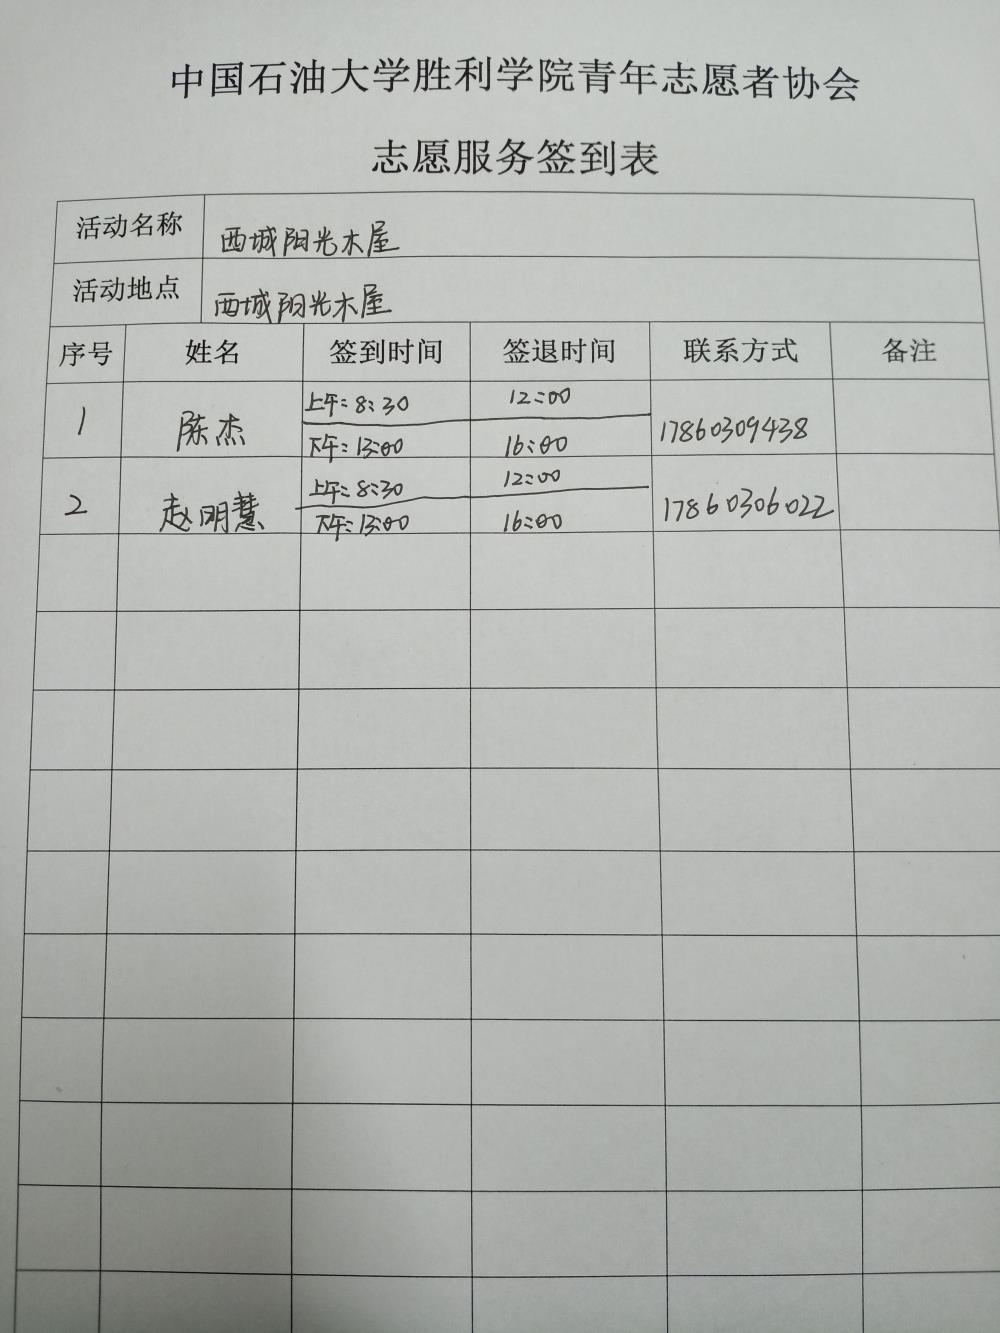 中国石油大学胜利学院青年志愿者协会
志愿服务签到表
活动名称 西城阳光木屋
活动地点 西城阳光木屋
序号 姓名 签到时间 签退时间 联系方式 备注
1 陈杰 上午:8:30 12:00 17860309438
下午:13:00 16:00
2 赵明慧 上午:8:30 12:00 17860306022
下午:13:00 16:00